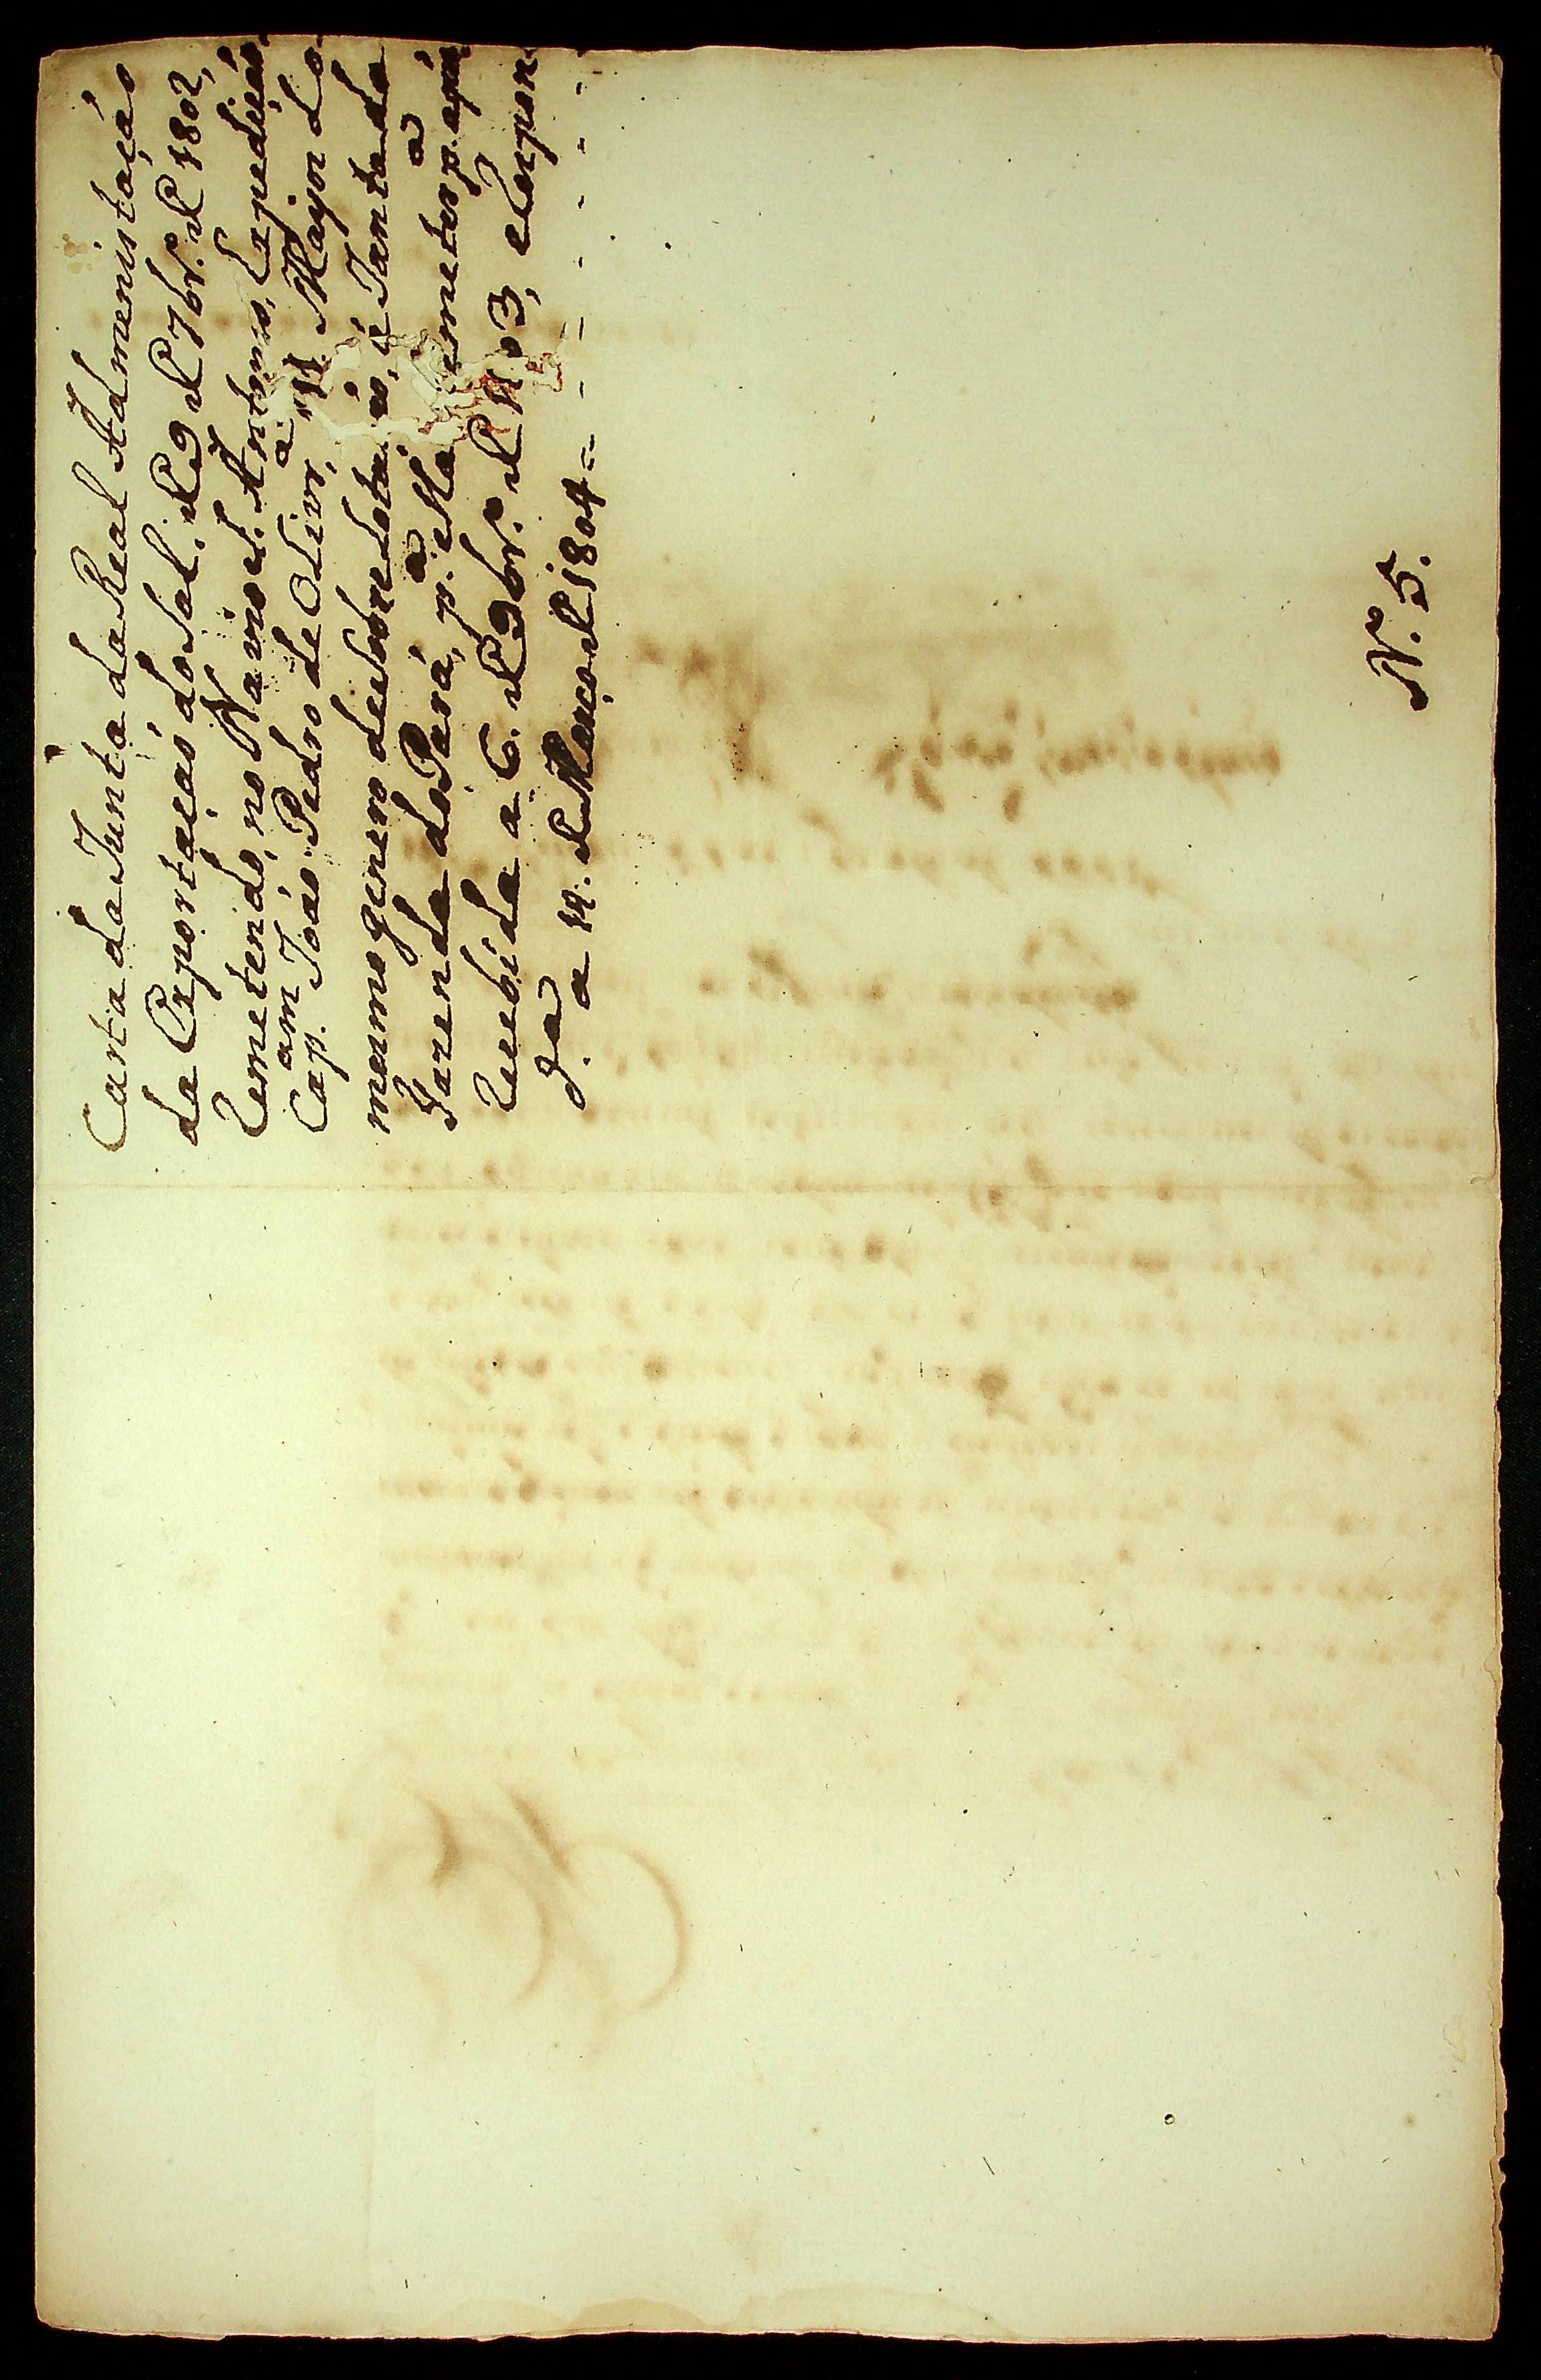 Carta da Junta da Real Admenistração
da Exportação do Sal, de 9 de 7br.º de 1802,
Remetendo, no Navio S. Antonio, Expedição
Cap.am João Pedro de Olivr.a, 11 Mayor do
mesmo genero de Sobredota, é Junta da
Fazenda do Pará, p.a Ma p.a
Recebida a 6. de 9br.º de 03, e Respon
da a 14. de Março de 1804
N.º 5.